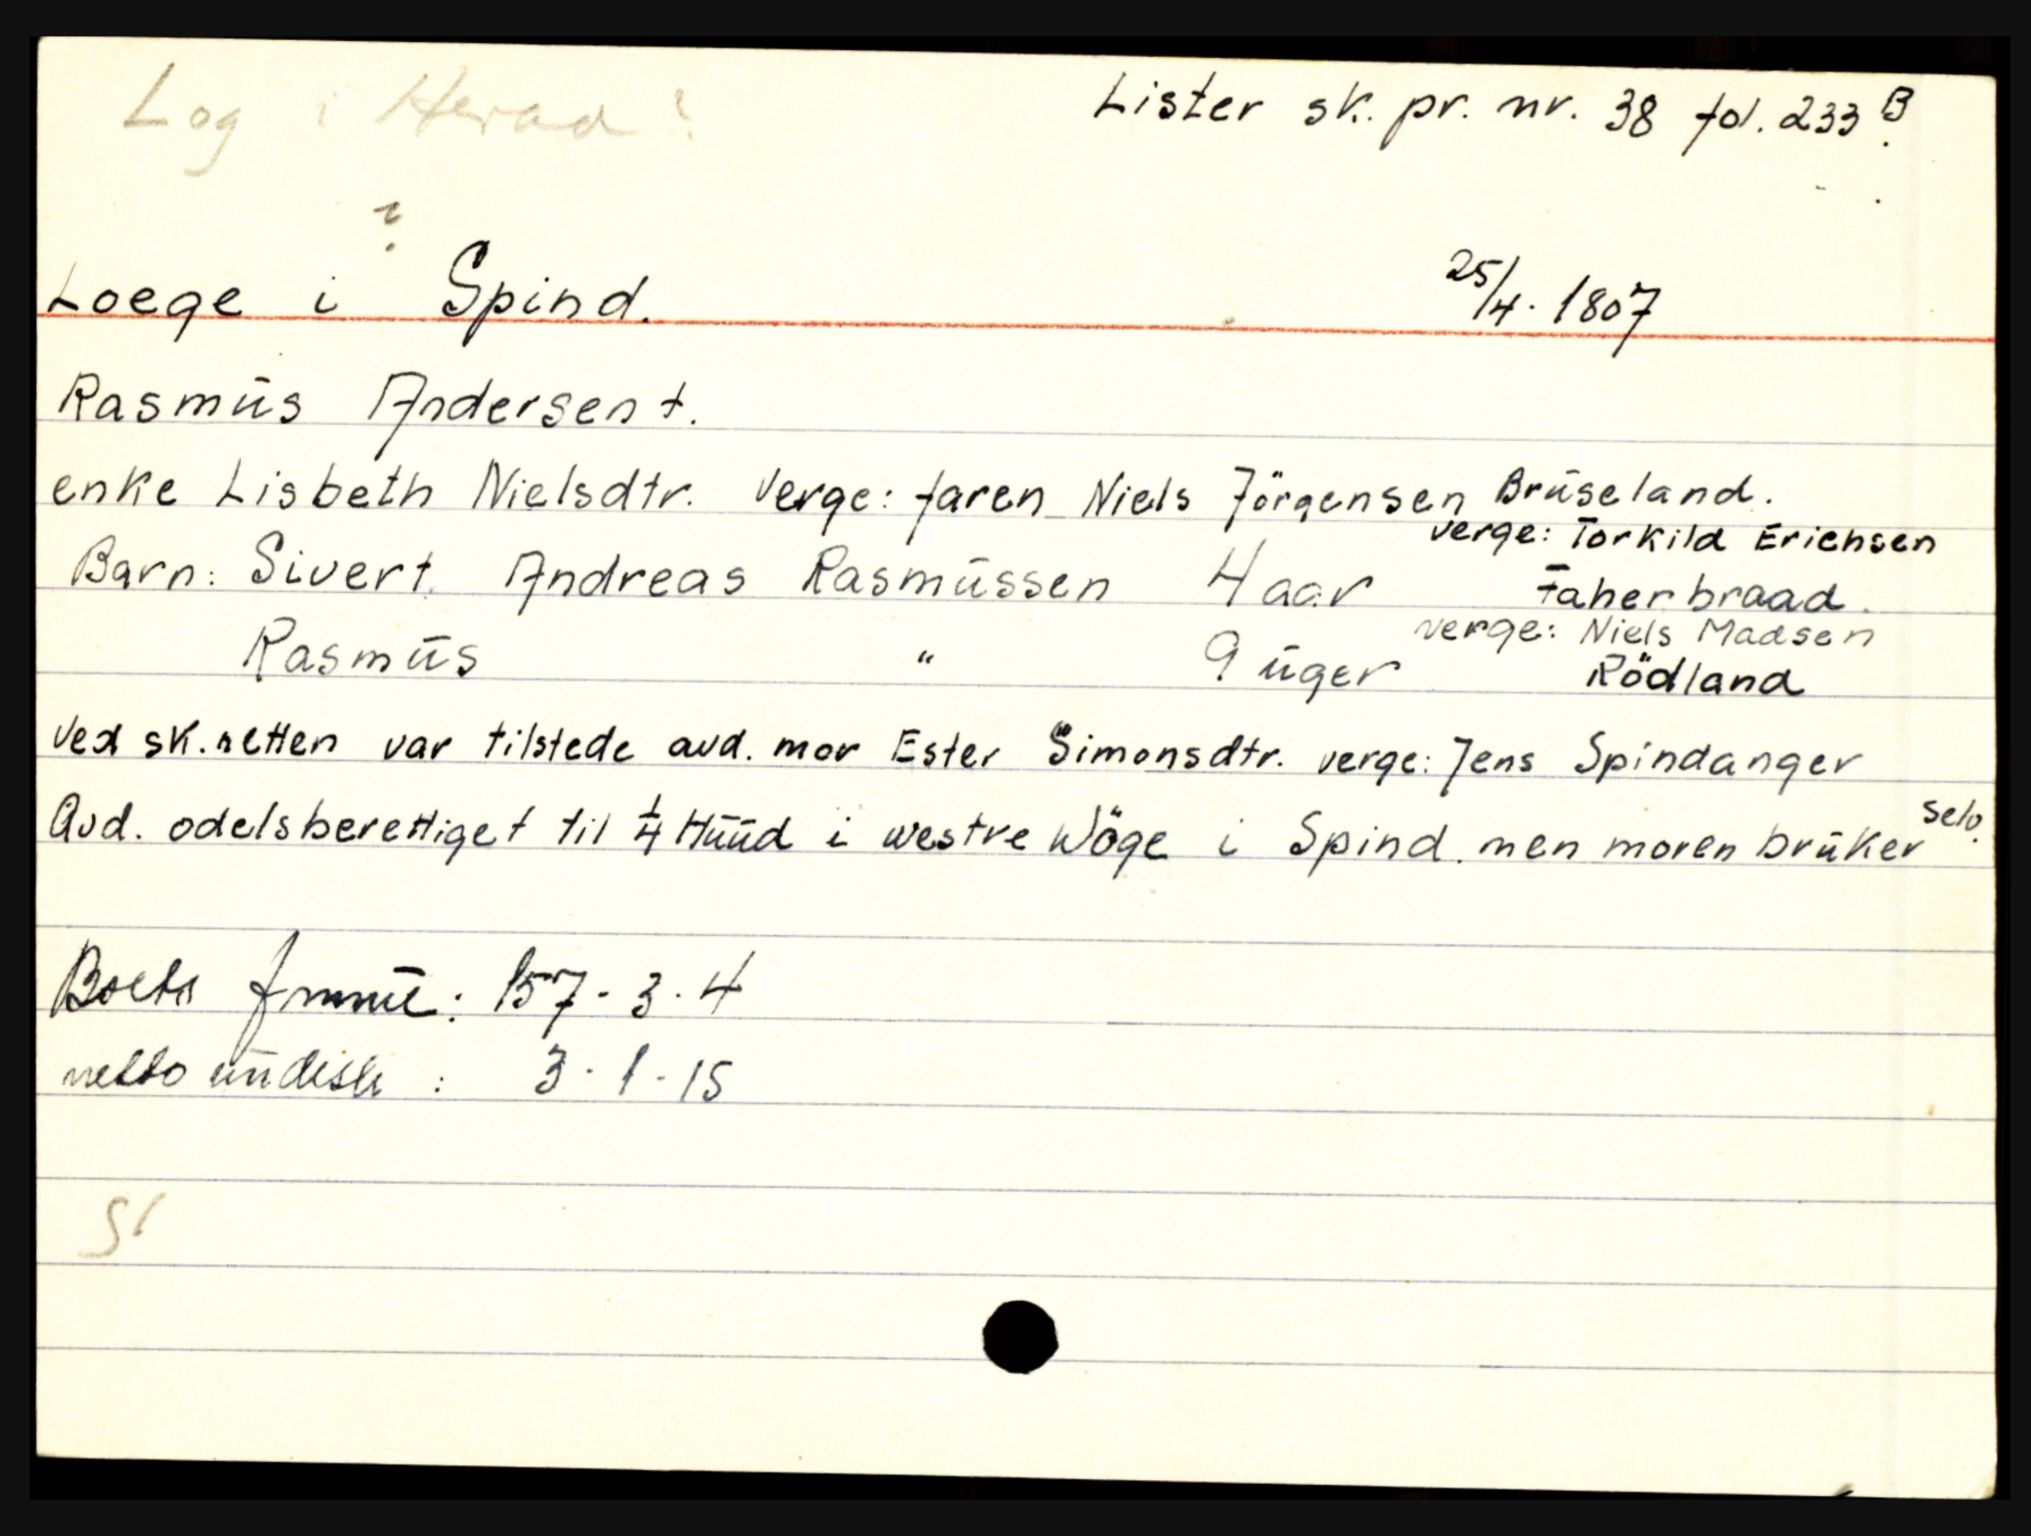 Log i Herad?
Lister sk. pr. nr. 38 fol. 233 B.
?
Loege i Spind. 25/4. 1807
Rasmūs Andersen †.
enke Lisbeth Nielsdtr. verge: faren Niels Jörgensen Brūseland.
verge: Torkild Erichsen
Barn: Sivert Andreas Rasmūssen 4 aar Faherbraad.
verge: Niels Madsen
Rasmūs " 9 ūger Rödland
ved sk.retten var tilstede avd. mor Ester Simonsdtr. verge: Jens Spindanger
Avd. odelsberettiget til 1/4 Hūūd i westre Wöge i Spind. men moren brūker selv.
Boets : 157 - 3 - 4
netto : 3 - 1 - 15